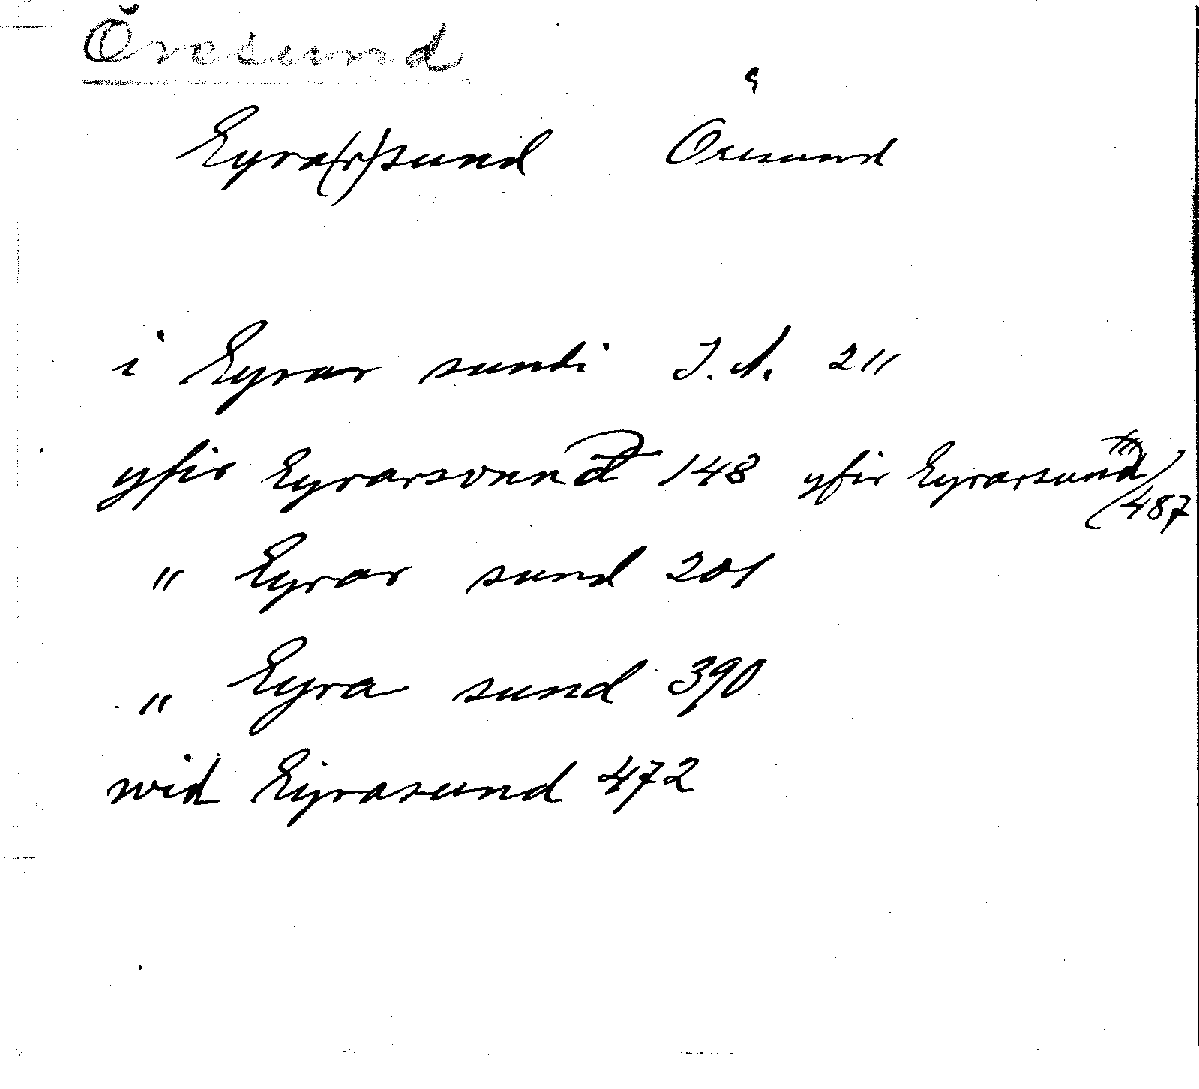 Öresund
Eyra(r)sund Öresund
i Eyrar sundi J.d. 211
yfir Eyrarsvnd 148 yfir Eyrarsund 487
" Eyrar sund 201
" Eyra sund 390
wid Eyrasund 472